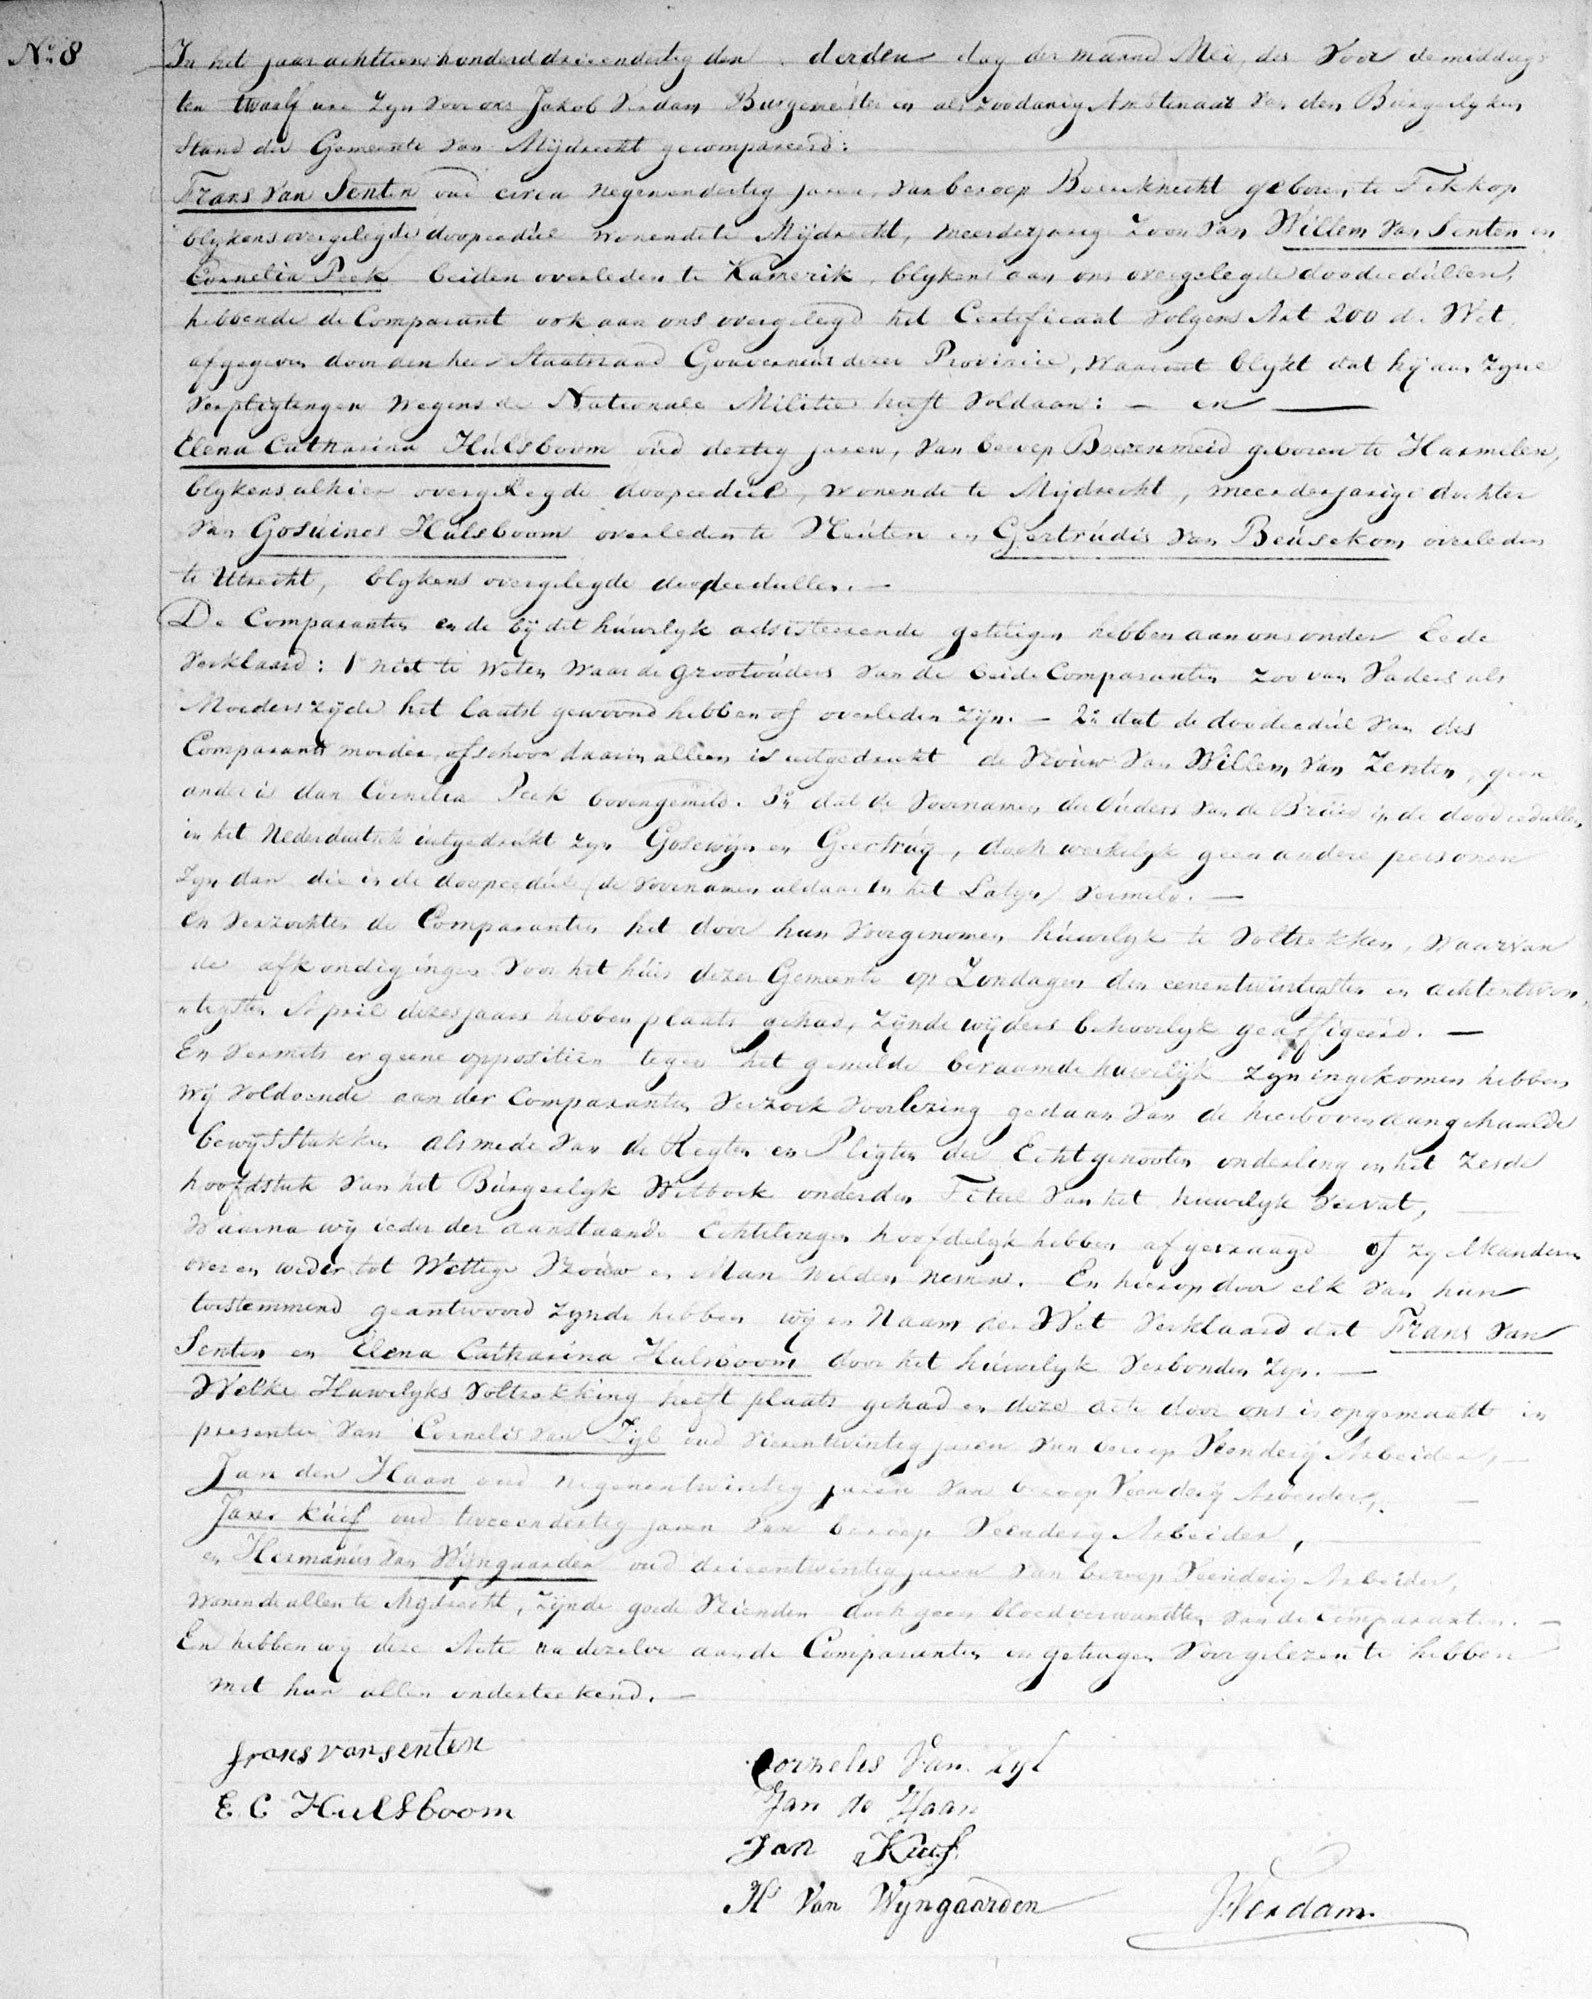 No. 8
In het jaar achttienhonderd drieendertig den derden dag der maand Mei, des Voor demiddags
ten twaalf ure Zyn Voor ons Jakob Verdam Burgemeester en als zoodanig Ambtenaar Van den Burgerlyken
Stand der Gemeente Van Mijdrecht gecompareerd:
Frans Van Senten oud circa negenendertig jaren, Van beroep Boereknecht geboren te Tekkop
blykens overgelegde doopcedúl wonende te Mijdrecht, meerderjarige Zoon Van Willem Van Senten en
Cornelia Peek beiden overleden te Kamerik, blykens aan ons overgelegde doodcedúllen,
hebbende de Comparant ook aan ons overgelegd het Certificaat Volgens Art 200 d. Wet,
afgegeven door den heer Staatsraad Gouverneur dezer Provincie, waaruit blykt dat hij aan Zyne
Verpligtingen wegens de Nationale Militie heeft Voldaan: — en —
Elena Catharina Húlsboom oúd dertig jaren, Van beroep Boerenmeid geboren te Harmelen,
blykens alhier overgelegde doopcedúl, wonende te Mijdrecht, meerderjarige dochter
Van Gosúinos Húlsboom overleden te Vleúten en Gertrúdis Van Beúsekom overleden
te Utrecht, blykens overgelegde doodcedullen. —
De Comparanten en de bij dit húwelyk adsisteerende getúigen hebben aan ons onder Eede
Verklaard: 1o niet te weten waar de grootoúders Van de beide Comparanten zoo van Vaders als
Moeders zyde het laatst gewoond hebben of overleden Zijn. — 2o dat de doodcedúl Van des
Comparants moeder, ofschoon daarin alleen is uitgedrukt de Vroúw Van Willem Van Zenten, geen
andere is dan Cornelia Peek bovengemeld. 3o dat de Voornamen der Oúders Van de Bruid in de doodcedullen
in het Nederduitsch úitgedrúkt zyn Gosewijn en Geertrúij, doch werkelyk geen andere personen
Zyn dan die in de doopcedúl (de Voornamen aldaar in het Latyn) Vermeld. —
en Verzochten de Comparanten het door hun Voorgenomen húwelyk te Voltrekken, Waarvan
de afkondigingen Voor het húis dezer Gemeente op Zondagen den eenentwintigsten en achtentwin
tigsten April dezes jaars hebben plaats gehad, zijnde wijders behoorlyk geaffigeerd. —
En Vermits er geene oppositien tegen het gemelde beraamde huwelijk Zyn ingekomen hebben
wij Voldoende aan der Comparanten Verzoek Voorlezing gedaan Van de hierboven aangehaalde
bewijsstukken alsmede Van de Regten en Pligten der Echtgenooten onderling in het Zesde
hoofdstuk Van het Búrgerlyk Wetboek onder den Titel Van het húwelyk Vervat,
Waarna wij ieder der aanstaande Echtelingen hoofdelyk hebben afgevraagd of zy elkanderen
over en weder tot Wettige Vroúw en Man wilden nemen. En hierop door elk Van hun
toestemmend geantwoord zynde hebben wij in Naam der Wet Verklaard dat Frans Van
Senten en Elena Catharina Hulsboom door het húwelyk Verbonden Zyn. —
Welke Huwelyks Voltrekking heeft plaats gehad en deze acte door ons is opgemaakt in
presentie Van Cornelis Van Zyl oud Vierentwintig jaren Van beroep Veenderij Arbeider, —
Jan den Haan oud negenentwintig jaren Van beroep Veenderij Arbeider, —
Jan Kúif oud tweeendertig jaren Van beroep Veenderij Arbeider, —
en Hermanús Van Wijngaarden oud drieentwintig jaren Van beroep Veenderij Arbeider,
wonende allen te Mijdrecht, zijnde goede Vrienden doch geen bloedverwandten Van de Comparanten. —
En hebben wij deze Acte na dezelve aan de Comparanten en getuigen Voorgelezen te hebben
met hun allen onderteekend. —
frans van senten
E. C Hulsboom
Cornelis Van Zyl
Jan de Haan
Jan Kuif
Hs Van Wyngaarden
J Verdam.